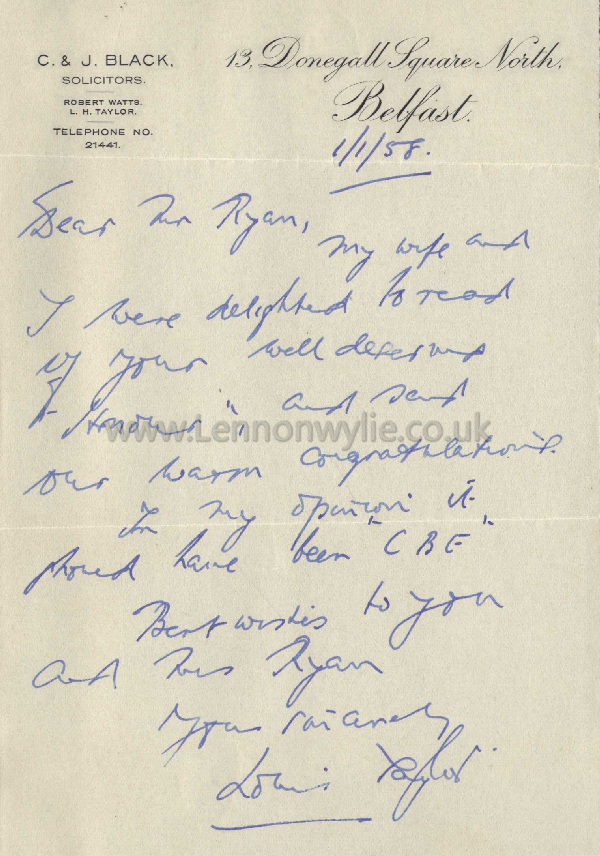 C. & J. BLACK.
SOLICITORS.
ROBERT WATTS.
L. H. TAYLOR.
TELEPHONE NO.
21441.
13, Donegall Square North,
Belfast.
1/1/58.
Dear Mr Ryan,
My wife and
I were delighted to read
of your well deserved
"Honour", and send
www.Lennonwylie.co.uk
our warm congratulations.
In my opinion it
should have been "CBE"
Best wishes to you
and Mrs Ryan
Yours sincerely
Louis Taylor